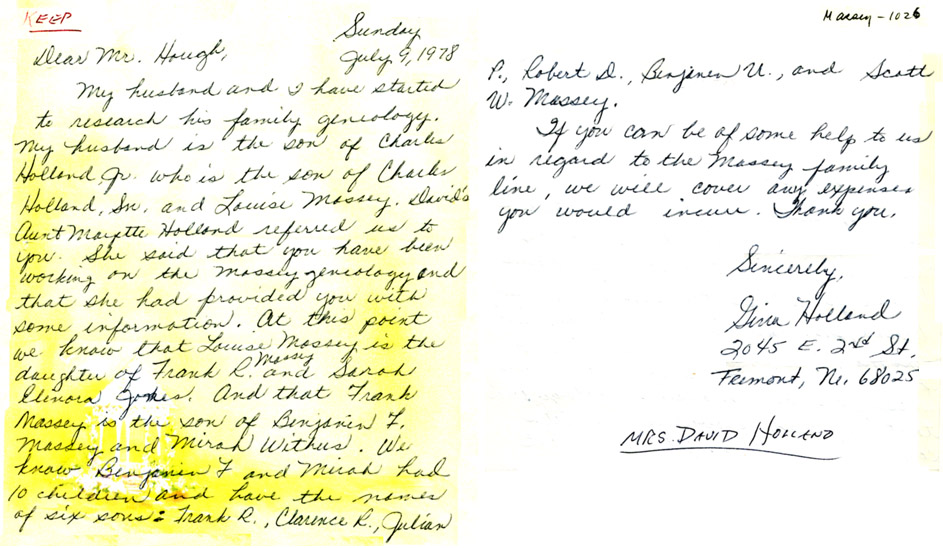 KEEP
Sunday
July 9, 1978
Dear Mr. Hough,
My husband and I have started
to research his family geneology.
My husband is the son of Charles
Holland Jr. who is the son of Charles
Holland, Sr. and Louise Massey. David's
Aunt Mayette Holland referred us to
you. She said that you have been
working on the Massey geneology and
that she had provided you with
some information. At this point
we know that Louise Massey is the
daughter of Frank R. Massey and Sarah
Elenora. And that Frank
Massey is the son of Benjamin F.
Massey and Mirah Withus. We
know Benjamin F and Mirah had
10 children and have the names
of six sons: Frank R., Clarence R., Julian
Massey - 1026
P., Robert D., Benjamen U., and Scott
W. Massey.
If you can be of some help to us
in regard to the Massey family
line, we will cover any expenses
you would incur. Thank you.
Sincerely,
Gina Holland
2045 E. 2nd St.
Fremont, Ne. 68025
MRS. DAVID HOLLAND